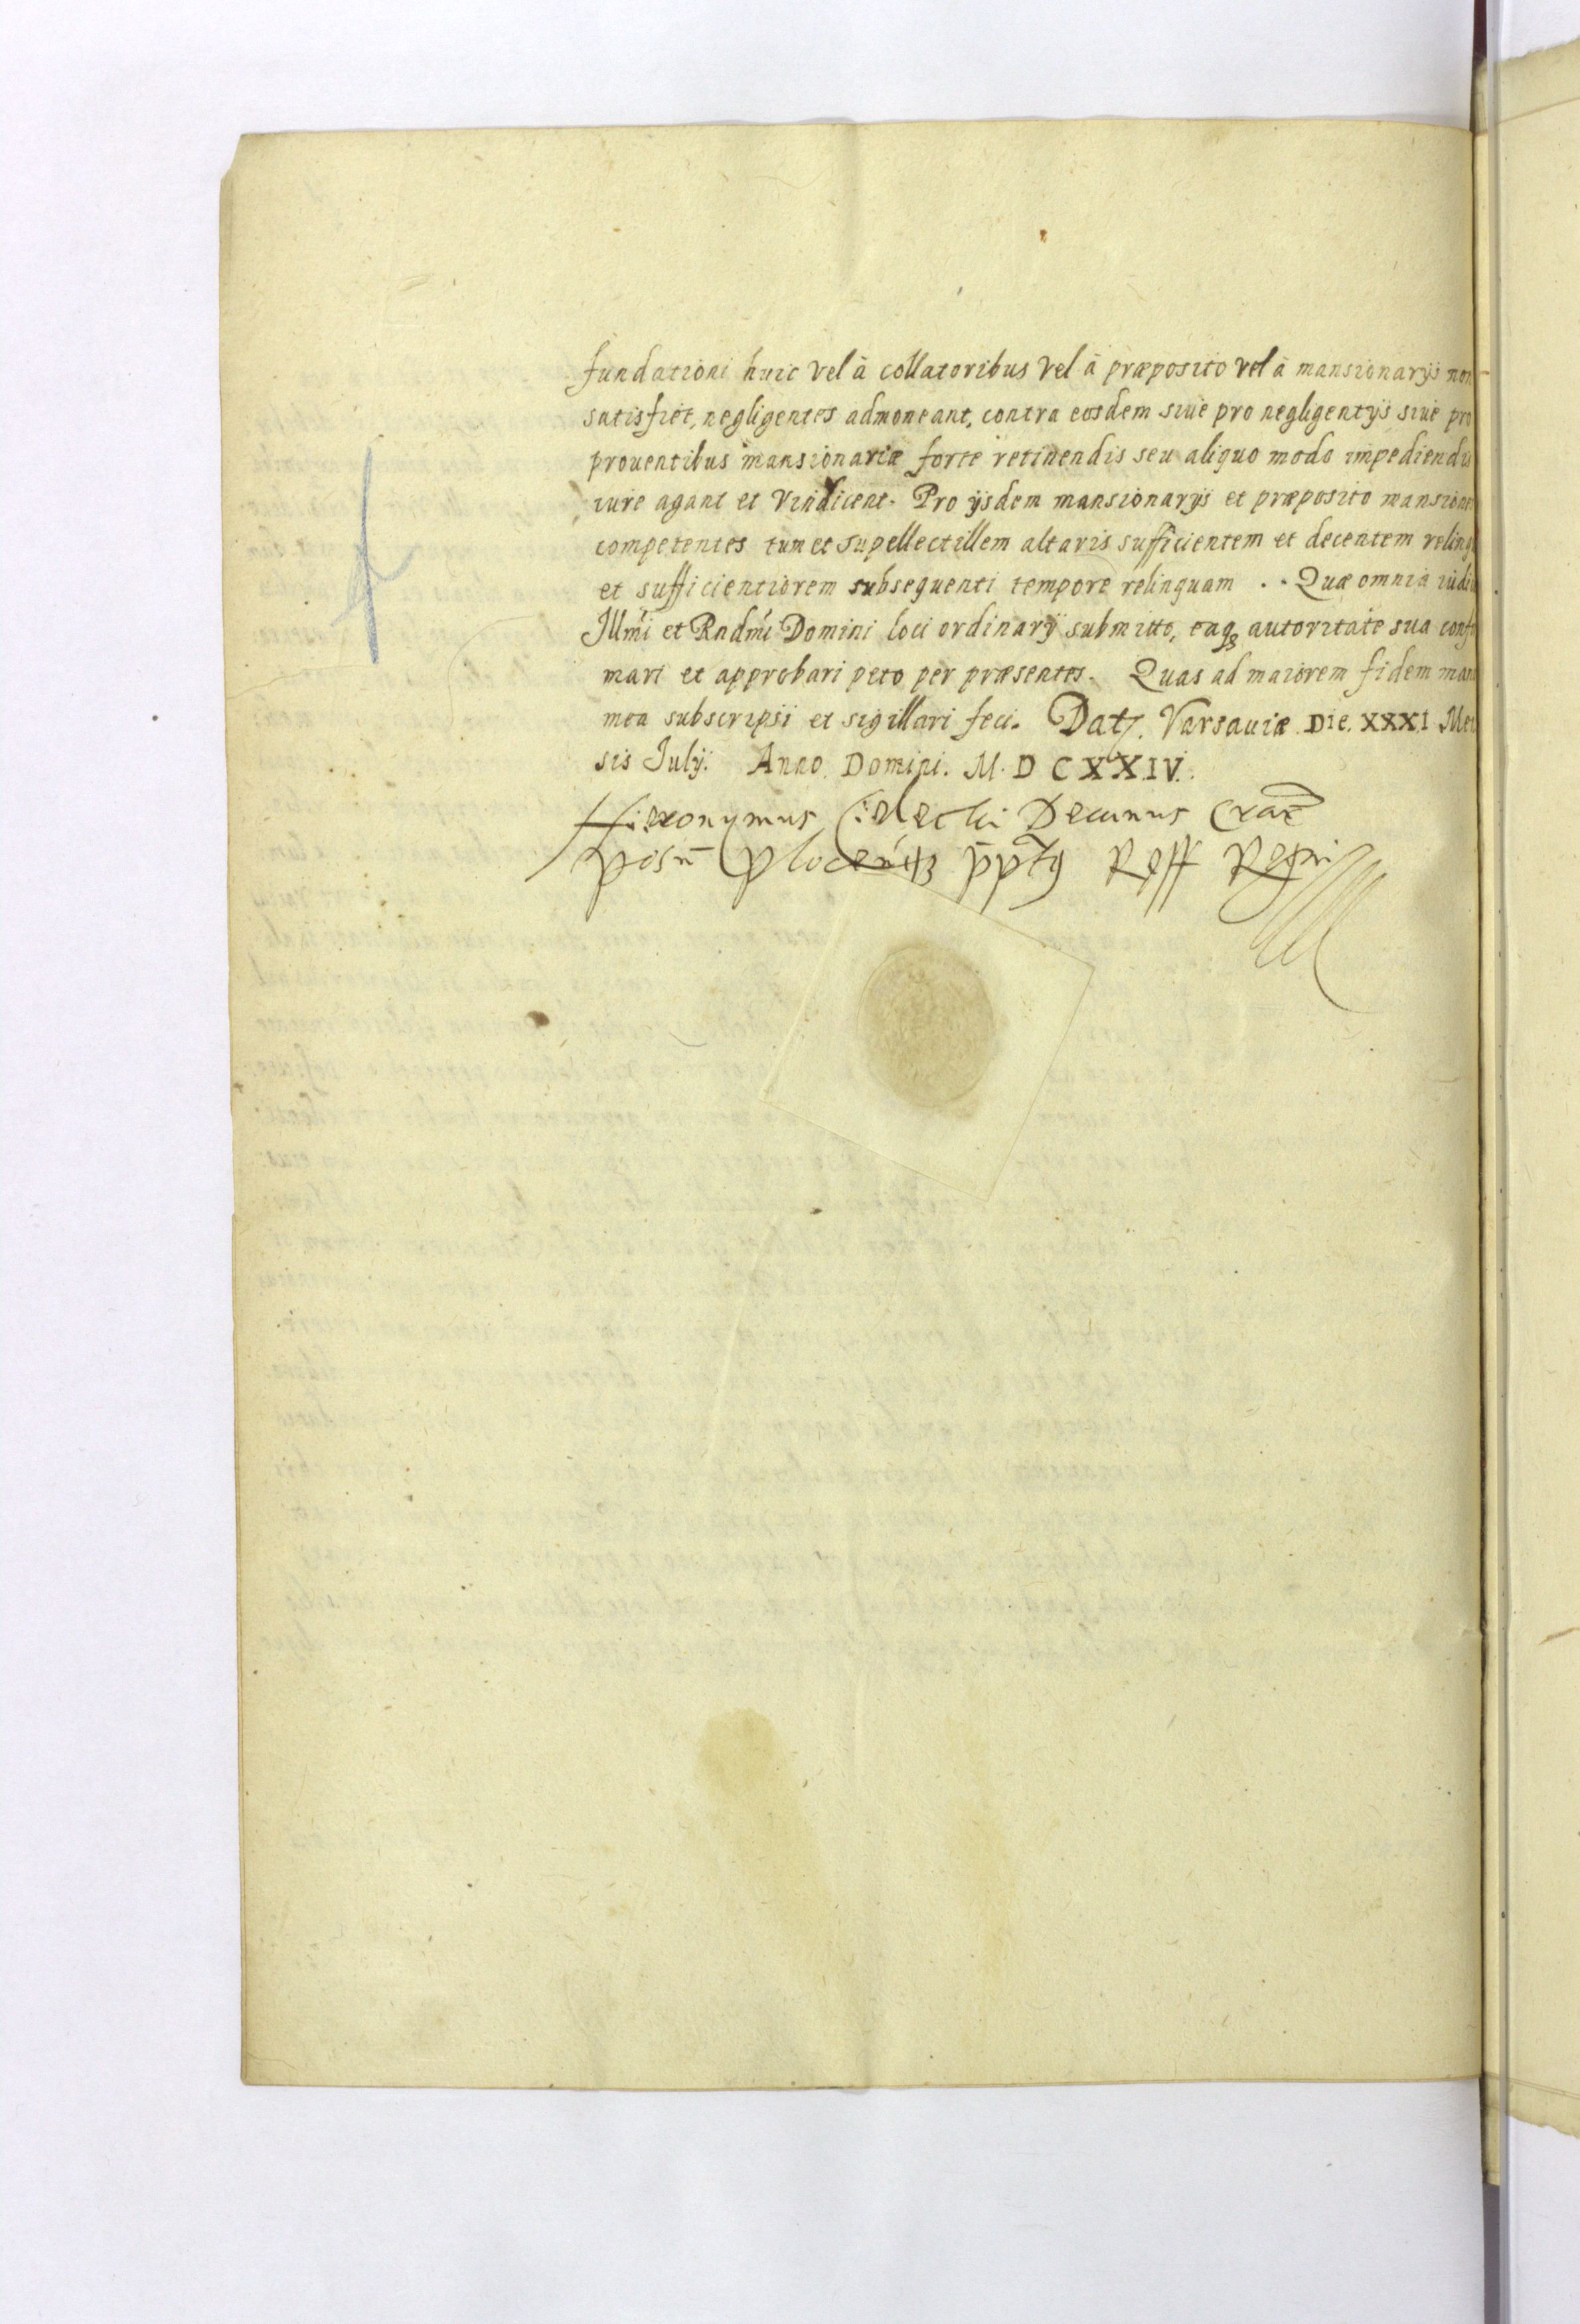 fundationi huic vel à collatoribus vel à præposito vel à mansionarijs non
satisfiet, negligentes admoneant, contra eosdem siue pro negligentijs siue pro
prouentibus mansionariæ forte retinendis seu aliquo modo impediendis
iure agant et vindicent. Pro ijsdem mansionarijs et præposito mansiones
competentes tum et supellectillem altaris sufficientem et decentem relinq
et sufficientiorem subsequenti tempore relinquam. Quæ omnia iudi
Illmi et Rndmi Domini loci ordinarij submitto, eaq; autoritate sua confi
mari et approbari peto per præsentes. Quas ad maiorem fidem man
mea subscripsi et sigillari feci. Dat. Varsauiæ DIE. XXXI Men
sis Julij. Anno Domini. M. D C XXIV.
Hieronymus Cielecki Decanus Crac
Posn Plocen ppts Reff Regni